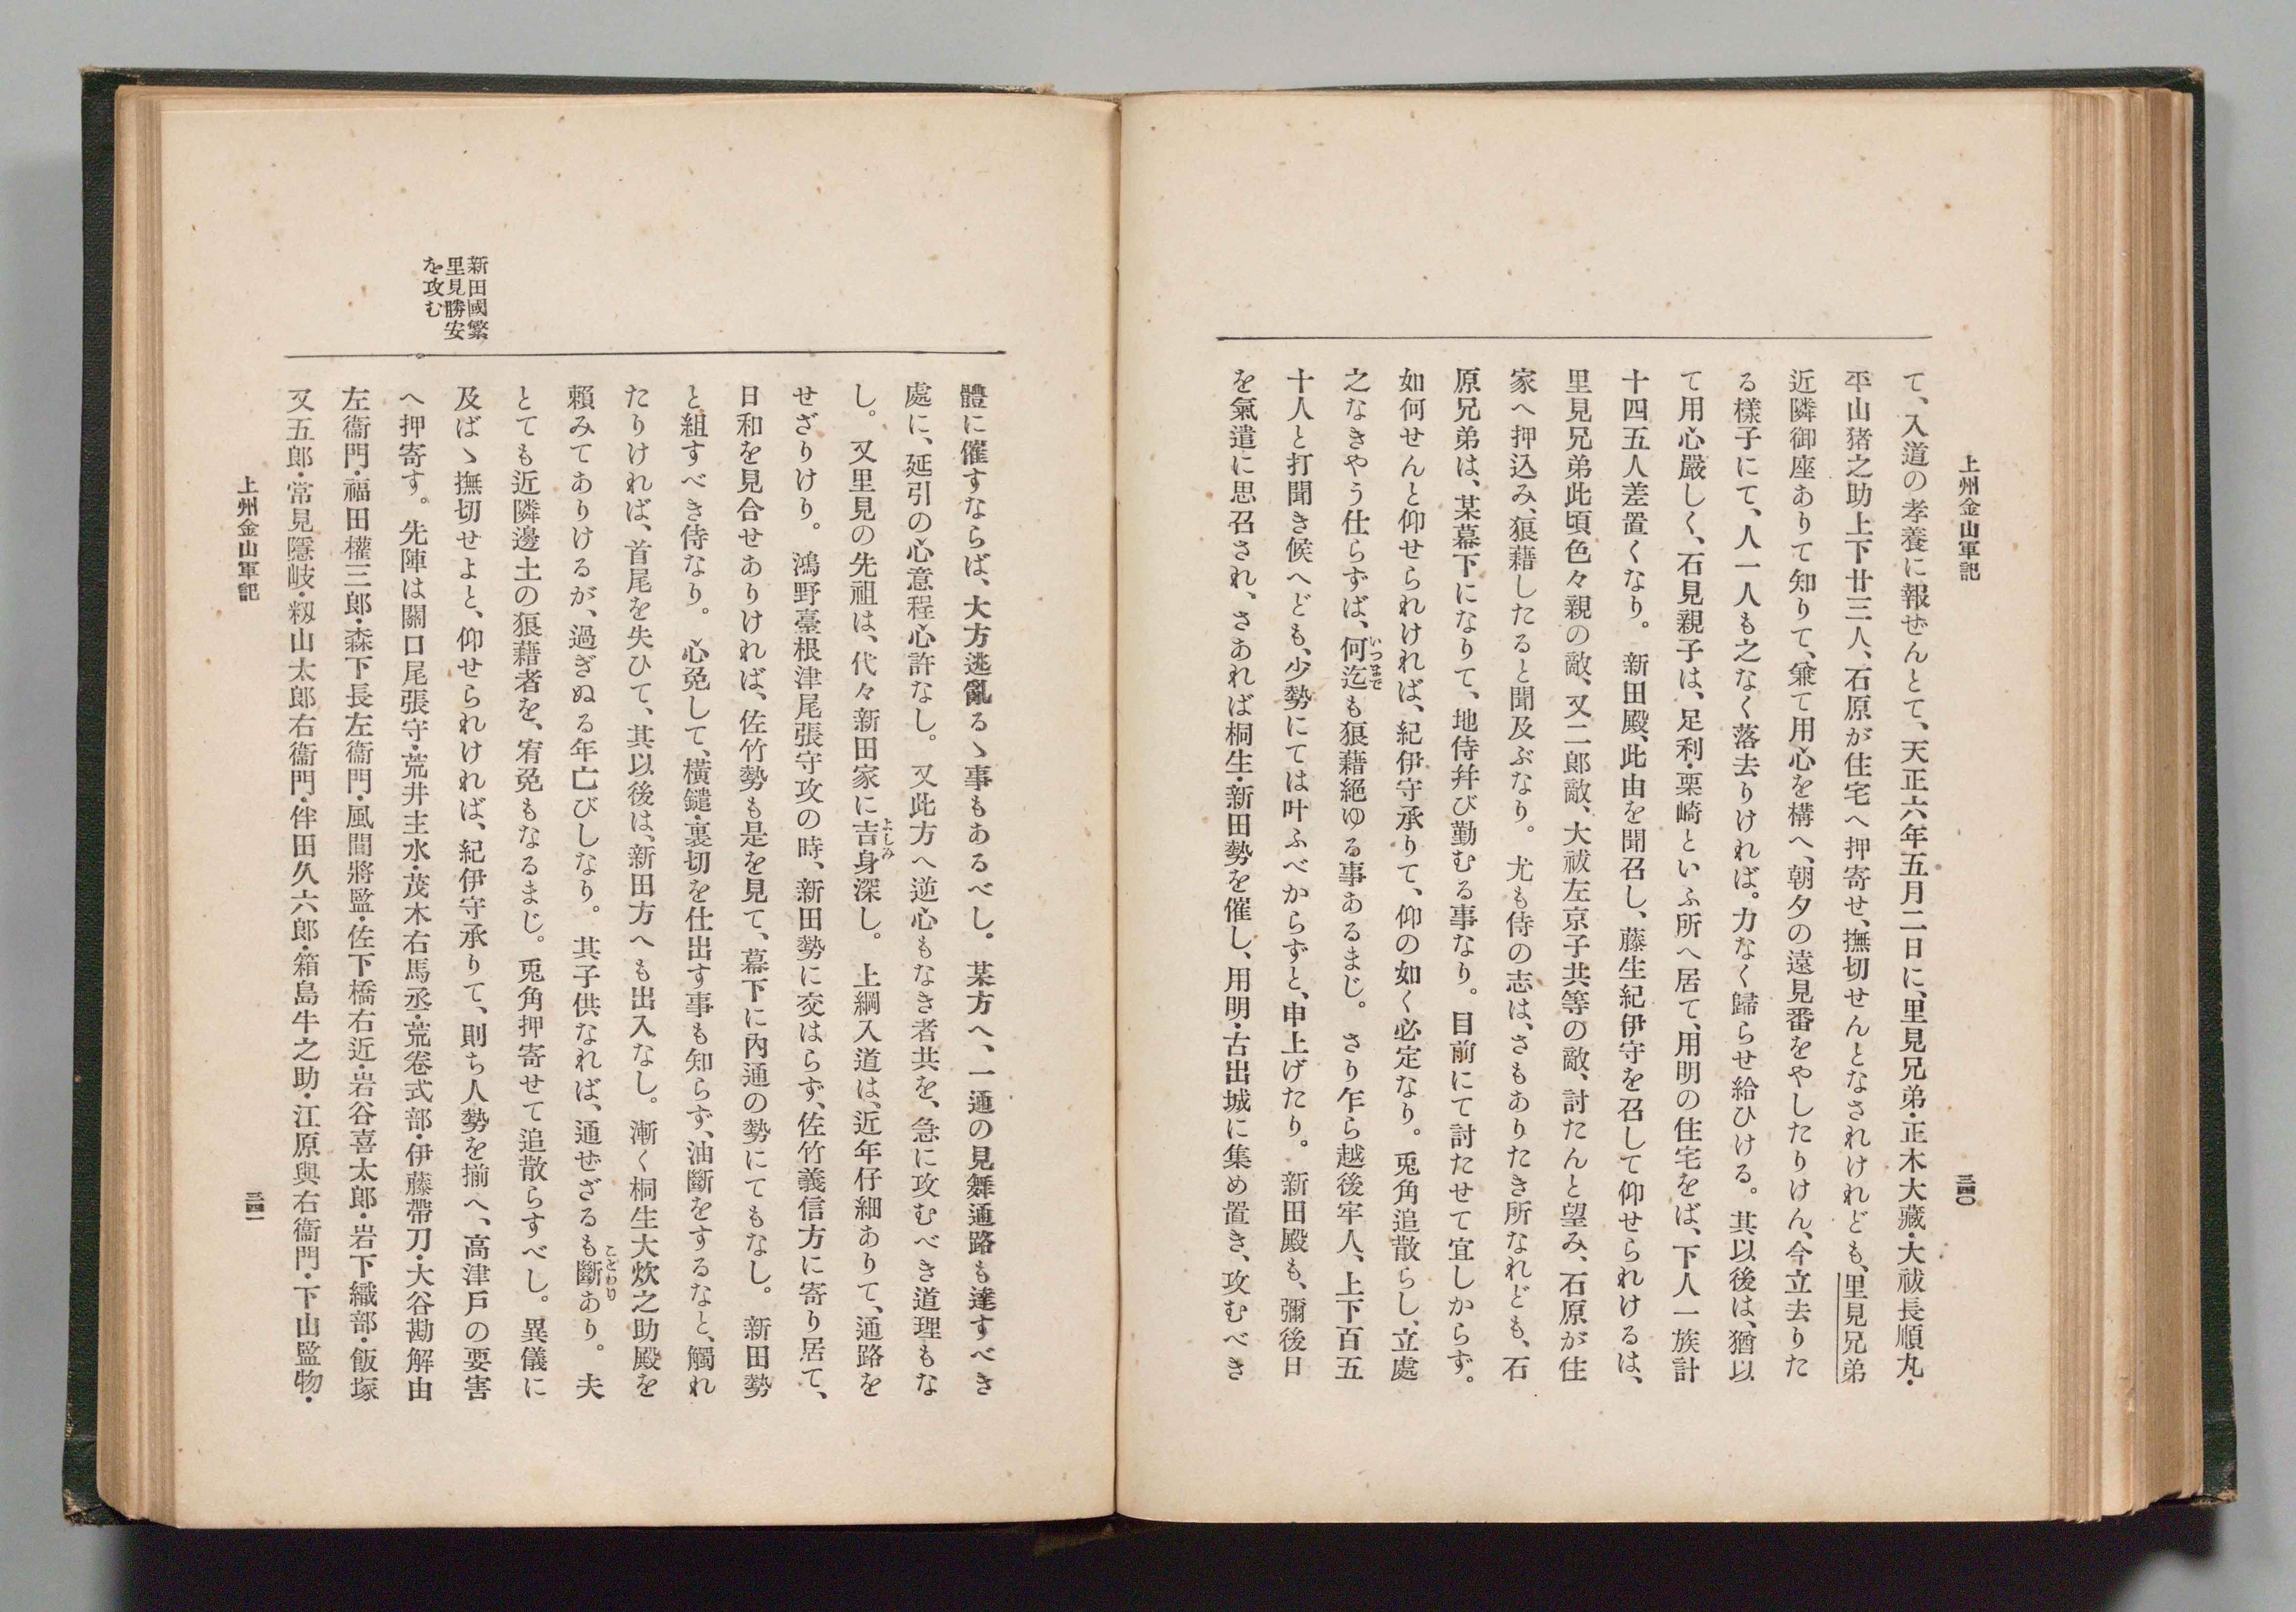 上州金山軍記
三四〇
て、入道の孝養に報ぜんとて、天正六年五月二日に、里見兄弟・正木大藏・大祓長順丸・
平山猪之助上下廿三人、石原が住宅へ押寄せ、撫切せんとなされけれども、里見兄弟
近隣御座ありて知りて、兼て用心を構へ、朝夕の遠見番をやしたりけん、今立去りた
る樣子にて、人一人も之なく落去りければ。力なく歸らせ給ひける。其以後は、猶以
て用心嚴しく、石見親子は、足利・栗崎といふ所へ居て、用明の住宅をば、下人一族計
十四五人差置くなり。新田殿、此由を聞召し、藤生紀伊守を召して仰せられけるは、
里見兄弟此頃色々親の敵、又二郎敵、大祓左京子共等の敵、討たんと望み、石原が住
家へ押込み、狼藉したると聞及ぶなり。尤も侍の志は、さもありたき所なれども、石
原兄弟は、某幕下になりて、地侍幷び勤むる事なり。目前にて討たせて宜しからず。
如何せんと仰せられければ、紀伊守承りて、仰の如く必定なり。兎角追散らし、立處
之なきやう仕らずば、何迄も狼藉絶ゆる事あるまじ。さり乍ら越後牢人、上下百五
いつまで
十人と打聞き候へども、少勢にては叶ふべからずと、申上げたり。新田殿も、彌後日
を氣遣に思召され、さあれば桐生・新田勢を催し、用明・古出城に集め置き、攻むべき
體に催すならば、大方逃亂るゝ事もあるべし。某方へ、一通の見舞通路も達すべき
處に、延引の心意程心許なし。又此方へ逆心もなき者共を、急に攻むべき道理もな
し。又里見の先祖は、代々新田家に吉身深し。上綱入道は、近年仔細ありて、通路を
よしみ
せざりけり。鴻野臺根津尾張守攻の時、新田勢に交はらず、佐竹義信方に寄り居て、
日和を見合せありければ、佐竹勢も是を見て、幕下に内通の勢にてもなし。新田勢
と組すべき侍なり。心免して、橫鑓・裏切を仕出す事も知らず、油斷をするなと、觸れ
たりければ、首尾を失ひて、其以後は、新田方へも出入なし。漸く桐生大炊之助殿を
賴みてありけるが、過ぎぬる年亡びしなり。其子供なれば、通ぜざるも斷あり。夫
ことわり
とても近隣邊土の狼藉者を、宥免もなるまじ。兎角押寄せて追散らすべし。異儀に
及ばゝ撫切せよと、仰せられければ、紀伊守承りて、則ち人勢を揃へ、高津戸の要害
へ押寄す。先陣は關口尾張守・荒井主水・茂木右馬丞・荒卷式部・伊藤帶刀・大谷勘解由
左衞門・福田權三郎・森下長左衞門・風間將監・佐下橋右近・岩谷喜太郎・岩下織部・飯塚
又五郎・常見隱岐・籾山太郎右衞門・伴田久六郎・箱島牛之助・江原與右衞門・下山監物・
新田國繁
里見勝安
を攻む
上州金山軍記
三四一